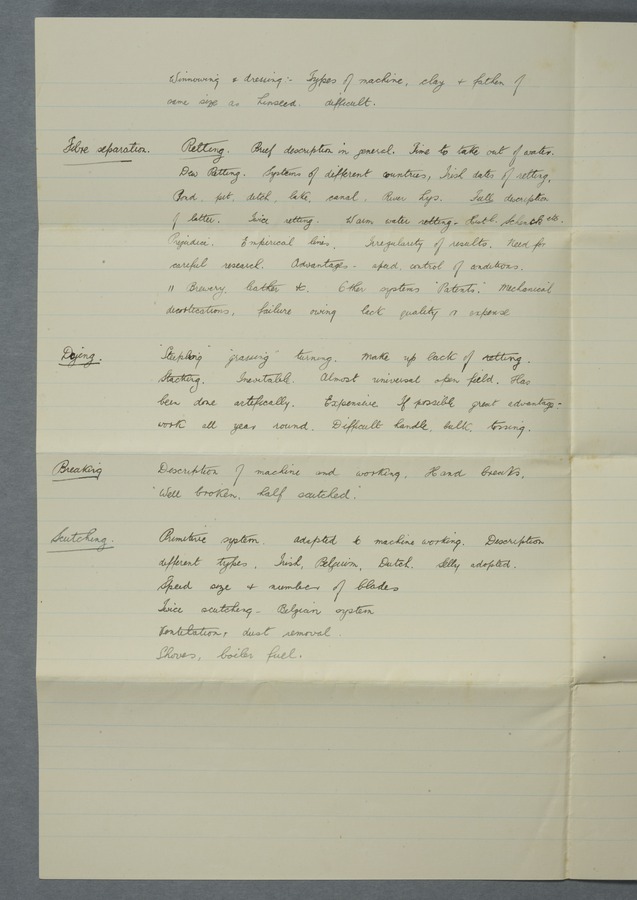 Winnowing & dressing:- Types of machine, clay + fathen of
same size as linseed. difficult.
Fibre separation. Retting. Brief description in general. Time to take out of water.
Dew Retting. Systems of different countries, Irish dates of retting,
Pond, pit, ditch, lake, canal, River Lys. Full description
of latter. Twice retting. Warm water retting - etc.
Prejudice. Empirical lines, Irregularity of results. Need for
careful research. Advantages - speed, control of conditions.
" Brewery, leather &c. Other systems "Patents". Mechanical
decortications, failure owing lack quality & expense
Drying. "Steepling" "grassing" turning. Make up lack of retting.
Stacking. Inevitable. Almost universal open field. Has
been done artifically. Expensive If possible great advantage -
work all year round. Difficult handle, bulk, tossing.
Breaking Description of machine and working, Hand breaks,
"Well broken, half scutched."
Scutching. Primitive system, adapted to machine working. Description
different types, Irish, Belgium, Dutch. adopted.
Speed size + number of blades
Twice scutching - Belgian system
Ventilation, dust removal.
Shoves, boiler fuel.